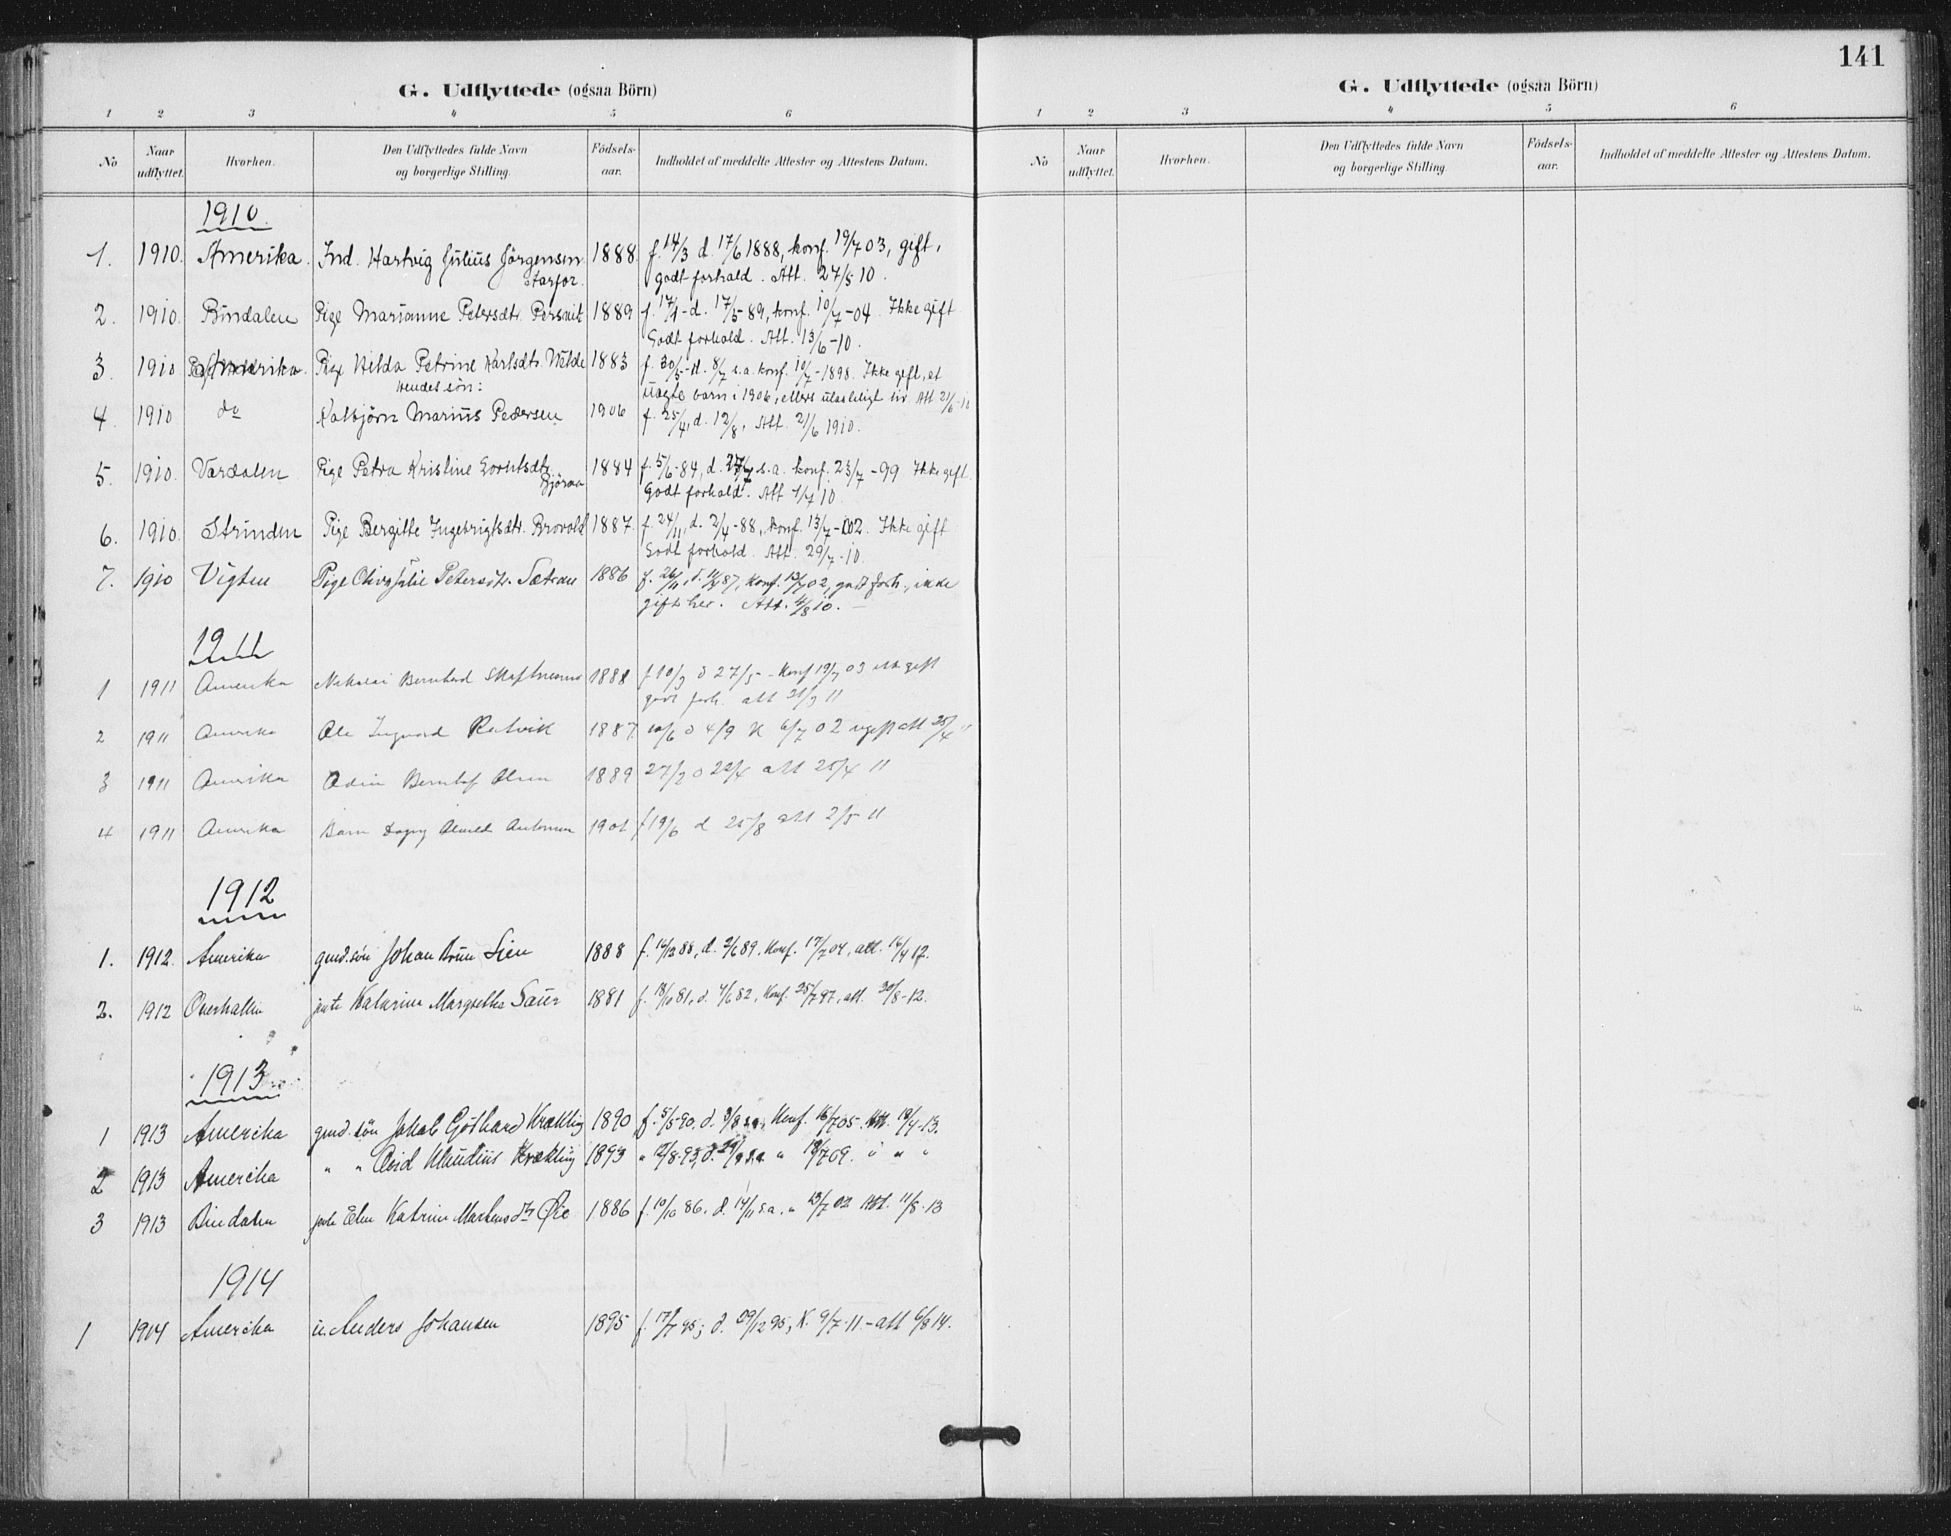 141
G. Udflyttede (ogsaa Börn)
1 2 3 4 5 6
No Naar udflyttet. Hvorhen. Den Udflyttedes fulde Navn og borgerlige Stilling. Födsels-aar. Indholdet af meddelte Attester og Attestens Datum.
1910.
1. 1910. Amerika. Ind. Hartvig Julius Jörgensen 1888. f. 14/3 d. 17/6 1888, konf. 19/7 03, gift,
godt forhold. Att. 27/5 10.
2. 1910. Bindalen Pige Marianne Petersdtr. 1889 f. 17/1 - d. 17/5-89, konf. 10/7-04. Ikke gift
Godt forhold. Att. 13/6-10.
3. 1910 Amerika. Pige Hilda Petrine Karlsdtr. 1883 f. 30/5 - d. 8/7 s.a. konf. 10/7-1898. Ikke gift, et
hendes sön: uægte barn i 1906, ellers Att 21/6-10
4. 1910 do Kolbjörn Marius Pedersen 1906 f. 25/4, d. 12/8, Att. 21/6 1910.
5. 1910. Værdalen Pige Petra Kristine 1884 f. 5/6-84, d. s.a. konf. 23/7-99 Ikke gift
Godt forhold. Att 10.
6. 1910. Strinden Pige Bergitte Ingebrigtsdtr. Brovold 1887. f. 24/11, d. 2/4-88, konf. 13/7-02. Ikke gift
Godt forhold. Att. 29/7-10.
7. 1910 Vigten Pige Oliva Julie Petersdtr. Sætran 1886 f. 26/11, d. 87, konf. 13/7 02, godt forh., ikke
gift her. Att. 4/8 10.
1911
1 1911 Amerika Nikolai Bernhard 1888 f 10/3 d 27/5 - Konf 19/7 03 gift
godt forh. att 31/3 11
2 1911 Amerika Ole Ingvard 1887. 10/6 d 4/9 K 6/7 02 ugift att 25/4 11
3 1911 Amerika Odin Olsen 1889 27/2 d 22/4 att 25/4 11
4 1911 Amerika Barn Dagny 1901 f 19/6 d 25/8 att 2/5 11
1912
1. 1912. Amerika gmd.sön Johan Brun Lien 1888 f. 14/12 88, d. 2/6 89, Konf. 17/7 04, att. 16/4 12.
2. 1912 Overhallen jente Katarina Margrethe Saur 1881 f. 18/10 81, d. 4/6 82, Konf. 25/7 97, att. 30/8-12.
1913
1 1913 Amerika gmd. sön Jakob Gothard Krækling 1890 f. 5/5-90, d. 3/8 s.a., Konf. 16/7 05. Att. 18/4-13.
2 1913 Amerika " " Klaudius Krækling 1893 " 12/8-93, d. s.a. " 18/7 09. " " "
3 1913 Bindalen jente Katrine Martensdtr Øie 1886 f. 19/10 86, d. 14/11 s.a. " 13/7 02 Att. 11/8-13
1914
1 1914 Amerika u. Anders Johansen 1895 f. 17/7 95; d. 29/12 95, K. 9/7-11 - att 6/8 14.
G. Udflyttede (ogsaa Börn)
1 2 3 4 5 6
No Naar udflyttet. Hvorhen. Den Udflyttedes fulde Navn og borgerlige Stilling Födsels-aar. Indholdet af meddelte Attester og Attestens Datum.